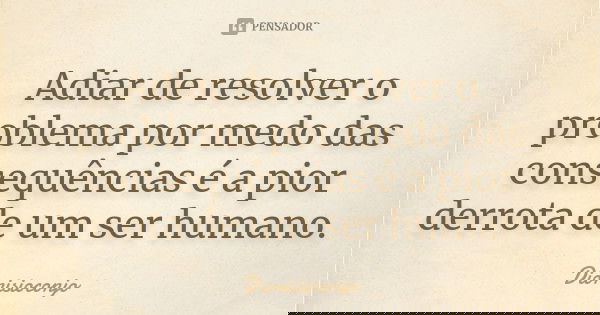 PENSADOR
Adiar de resolver o
problema por medo das
consequências é a pior
derrota de um ser humano.
Dionisioconjo